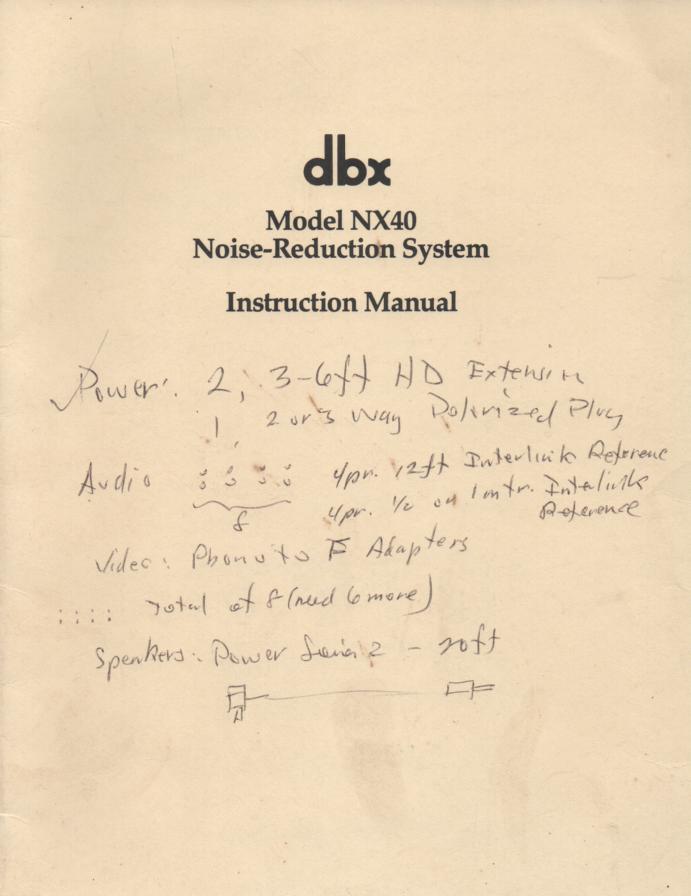 dbx
Model NX40
Noise-Reduction System
Instruction Manual
Power: 2, 3-6ft HD Extension
1, 2 or 3 Way Polarized Plug
Audio 4pr. 12ft Interlink Reference
8 4pr. 1/2 or 1 mtr. Interlink
Reference
Video: Phono to F Adapters
Total of 8 (need 6 more)
Speakers: Power 2 - 20ft